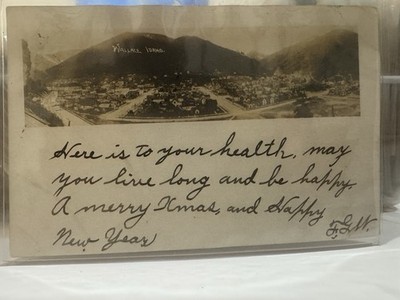 Wallace Idaho.
Here is to your health, may
you live long and be happy
A merry Xmas, and Happy
New Year
F.G.W.